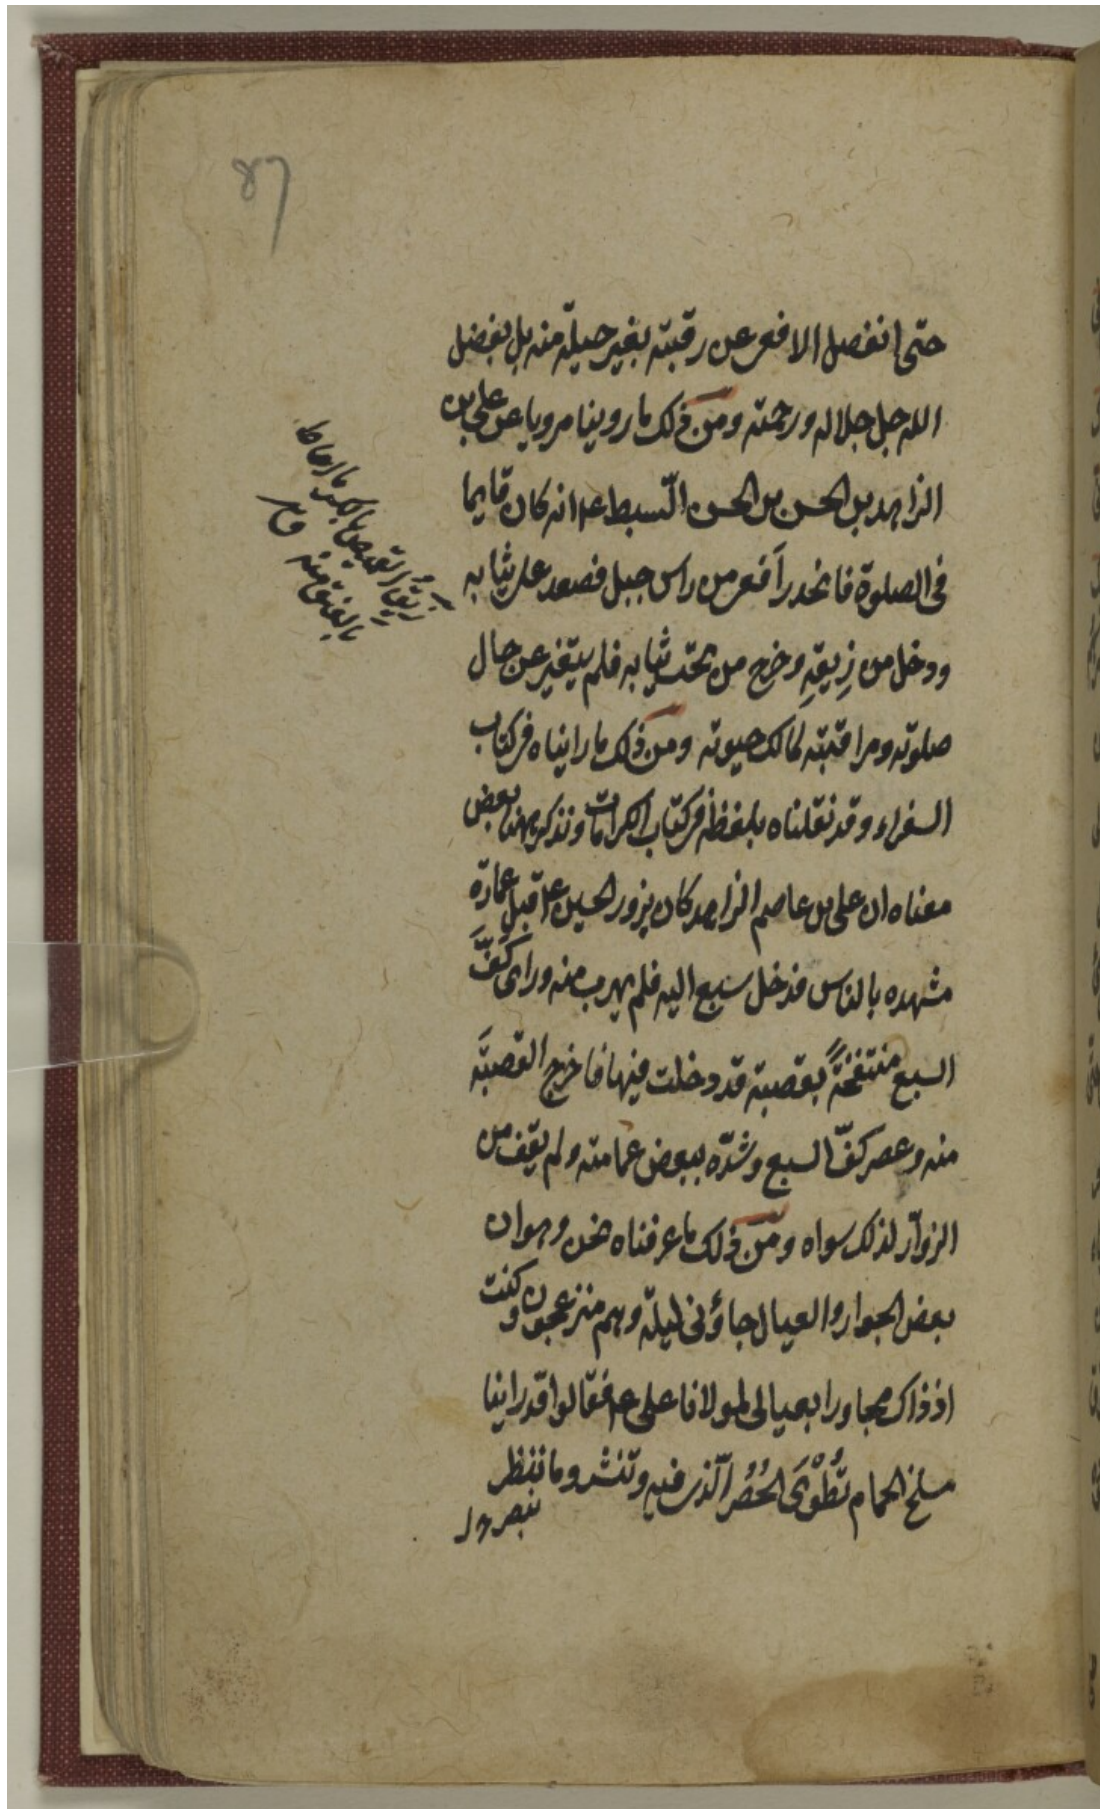 ٨٦
حتى انفصل الافعى عن رقبته بغير حيلة منه بل بفضل
الله جل جلاله ورحمته ومن ذلك ما روينا مرويا عن على بن
الزاهد بن الحسن بن الحسن السبط ع انه كان قايما
فى الصلوة فانحدر افعى من راس جبل فصعد على ثيابه
ودخل من زِيقِهِ وخرج من تحت ثيابه فلم يتغير عن حال
صلوته ومراقبته لمالك حيوته ومن ذلك ما رايناه فى كتاب
السفراء وقد نقلناه بلفظه فى كتاب الكرامات ونذكر ههنا بعض
معناه ان على بن عاصم الزاهد كان يزور الحسين ع قبل عمارة
مشهده بالناس فدخل سبع اليه فلم يهرب منه وراى كَفَّ
السبع منتفخةً بقصبة قد دخلت فيها فاخرج القصبَة
منه وعصر كفّ السبع وشدّه ببعض عمامته ولم يقف من
الزوّار لذلك سواه ومن ذلك ما عرفناه نحن وهو ان
بعض الجوار والعيال جاؤنى ليلة وهم منزعجون وكنت
اذ ذاك مجاورا بعيالى لمولانا على ع فقالوا قد راينا
مسلخ الحمام تُطْوَى الحُصُر الّذى فيه وتنشر وما ننظر
زيق القميص بالكسر ما احاط
بالعنق منه ق